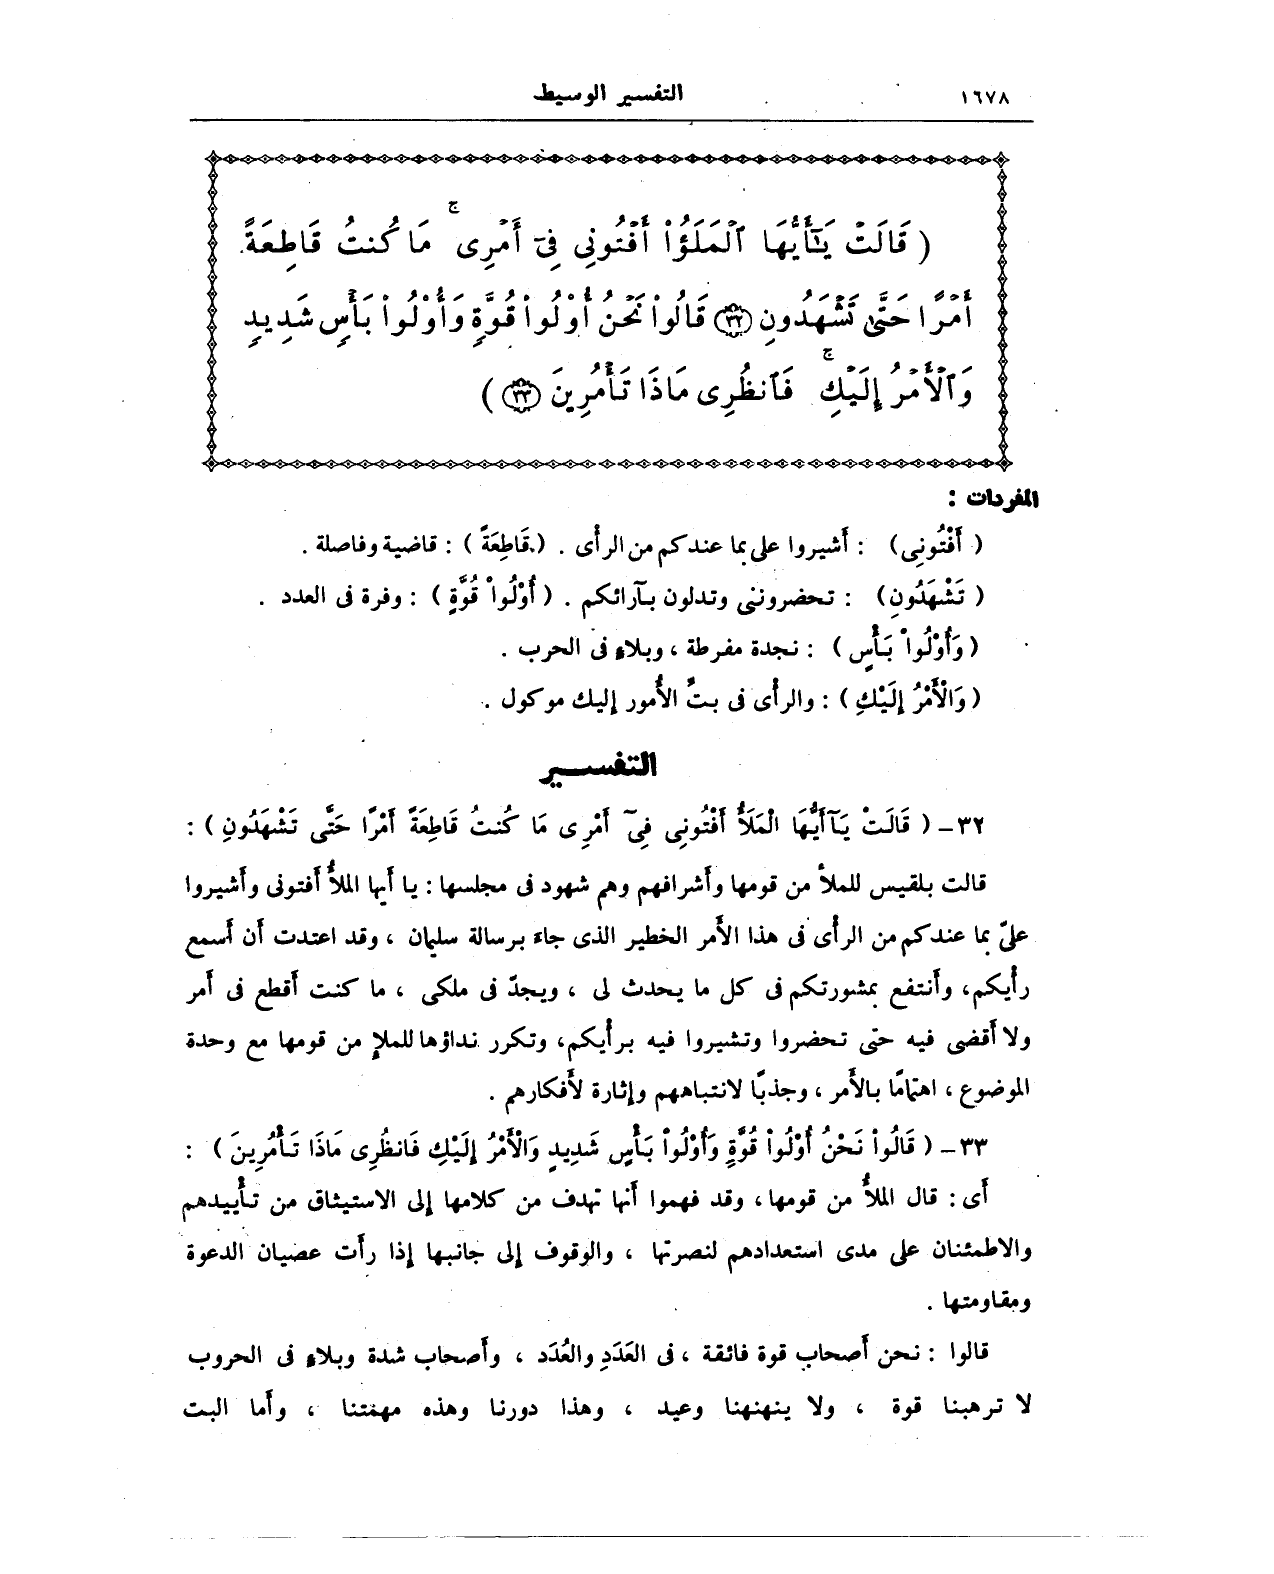 ١٦٧٨ التفسير الوسيط
( قَالَتْ يَٰٓأَيُّهَا ٱلْمَلَؤُا۟ أَفْتُونِى فِىٓ أَمْرِى ۚ مَا كُنتُ قَاطِعَةً
أَمْرًا حَتَّىٰ تَشْهَدُونِ ٣٢ قَالُوا۟ نَحْنُ أُو۟لُوا۟ قُوَّةٍ وَأُو۟لُوا۟ بَأْسٍ شَدِيدٍ
وَٱلْأَمْرُ إِلَيْكِ ۚ فَٱنظُرِى مَاذَا تَأْمُرِينَ ٣٣ )
المفردات :
( أَفْتُونِى) : أَشيروا على بما عندكم من الرأْى . (قَاطِعَةً ) : قاضية وفاصلة .
( تَشْهَدُونِ) : تحضروننى وتدلون بآرائكم . ( أُوْلُواْ قُوَّةٍ ) : وفرة فى العدد .
( وَأُوْلُواْ بَأْسٍ ) : نجدة مفرطة ، وبلاء فى الحرب .
( وَالْأَمْرُ إِلَيْكِ ) : والرأْى فى بتِّ الأُمور إليك موكول .
التفسـير
٣٢ـ ( قَالَتْ يَآ أَيُّهَا الْمَلَأُ أَفْتُونِى فِىٓ أَمْرِى مَا كُنتُ قَاطِعَةً أَمْرًا حَتَّى تَشْهَدُونِ ) :
قالت بلقيس للملأ من قومها وأَشرافهم وهم شهود فى مجلسها : يا أَيها الملأُ أَفتونى وأَشيروا
علىّ بما عندكم من الرأْى فى هذا الأَمر الخطير الذى جاءَ برسالة سليمان ، وقد اعتدت أَن أَسمع
رأْيكم، وأَنتفع بمشورتكم فى كل ما يحدث لى ، ويجدّ فى ملكى ، ما كنت أَقطع فى أَمر
ولا أَقضى فيه حتى تحضروا وتشيروا فيه برأْيكم، وتكرر نداؤها للملإِ من قومها مع وحدة
الموضوع ، اهتمامًا بالأَمر ، وجذبًا لانتباههم وإِثارة لأَفكارهم .
٣٣ـ ( قَالُواْ نَحْنُ أُوْلُواْ قُوَّةٍ وَأُوْلُواْ بَأْسٍ شَدِيدٍ وَالْأَمْرُ إِلَيْكِ فَانظُرِى مَاذَا تَأْمُرِينَ ) :
أَى : قال الملأُ من قومها، وقد فهموا أَنها تهدف من كلامها إِلى الاستيثاق من تأْييدهم
والاطمئنان على مدى استعدادهم لنصرتها ، والوقوف إِلى جانبها إذا رأَت عصيان الدعوة
ومقاومتها .
قالوا : نحن أَصحاب قوة فائقة ، فى العَدَدِ والعُدَد ، وأَصحاب شدة وبلاءٍ فى الحروب
لا ترهبنا قوة ، ولا ينهنهنا وعيد ، وهذا دورنا وهذه مهمتنا ، وأَما البت